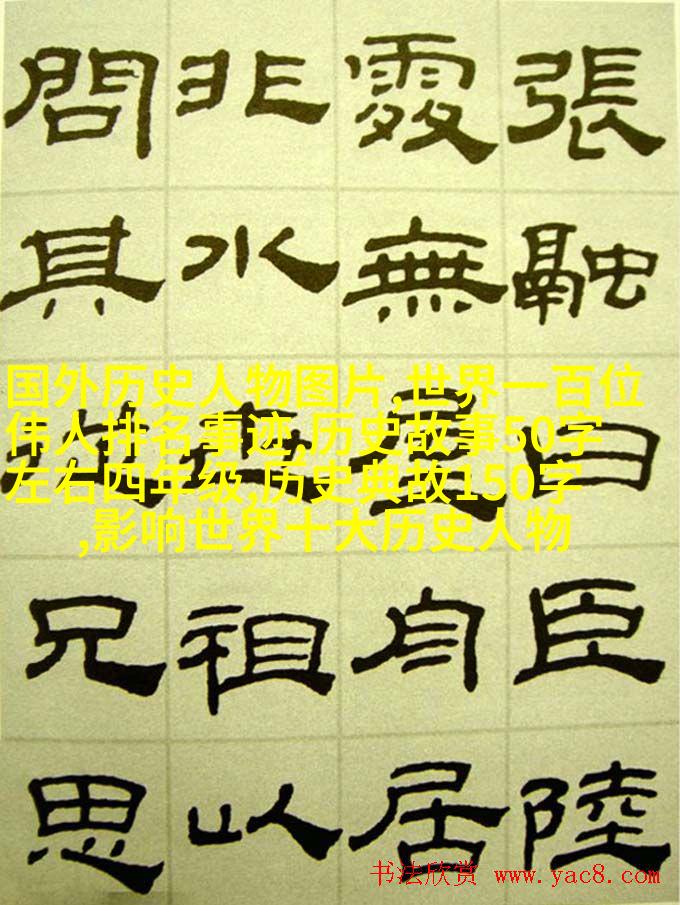 張融曰臣陸
處無屋舟居
非水祖以
問其兄思
国外历史人物图片,世界一百位
伟人排名事迹,历史故事50字
左右四年级,历史典故150字
,影响世界十大历史人物
书法欣赏 www.yac8.com